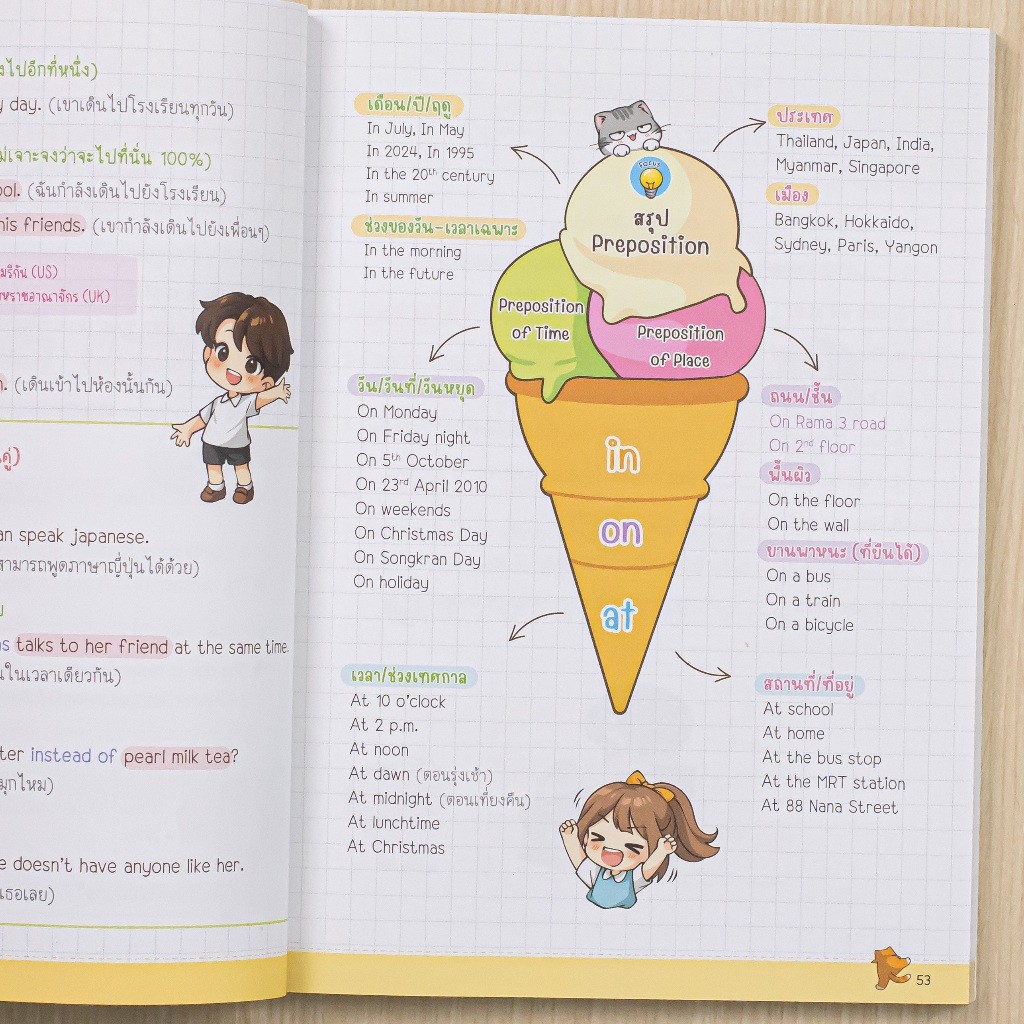 งไปอีกที่หนึ่ง)
y day. (เขาเดินไปโรงเรียนทุกวัน)
ม่เจาะจงว่าจะไปที่นั่น 100%)
ool. (ฉันกำลังเดินไปยังโรงเรียน)
his friends. (เขากำลังเดินไปยังเพื่อนๆ)
มริกัน (US)
หราชอาณาจักร (UK)
(เดินเข้าไปห้องนั้นกัน)
an speak japanese.
สามารถพูดภาษาญี่ปุ่นได้ด้วย)
talks to her friend at the same time.
นในเวลาเดียวกัน)
ter instead of pearl milk tea?
มุกไหม)
e doesn't have anyone like her.
เธอเลย)
FOCUS
สรุป
Preposition
Preposition
of Time
Preposition
of Place
in
on
at
เดือน/ปี/ฤดู
In July, In May
In 2024, In 1995
In the 20th century
In summer
ช่วงของวัน-เวลาเฉพาะ
In the morning
In the future
วัน/วันที่/วันหยุด
On Monday
On Friday night
On 5th October
On 23rd April 2010
On weekends
On Christmas Day
On Songkran Day
On holiday
เวลา/ช่วงเทศกาล
At 10 o'clock
At 2 p.m.
At noon
At dawn (ตอนรุ่งเช้า)
At midnight (ตอนเที่ยงคืน)
At lunchtime
At Christmas
ประเทศ
Thailand, Japan, India,
Myanmar, Singapore
เมือง
Bangkok, Hokkaido,
Sydney, Paris, Yangon
ถนน/ชั้น
On Rama 3 road
On 2nd floor
พื้นผิว
On the floor
On the wall
ยานพาหนะ (ที่ยืนได้)
On a bus
On a train
On a bicycle
สถานที่/ที่อยู่
At school
At home
At the bus stop
At the MRT station
At 88 Nana Street
53